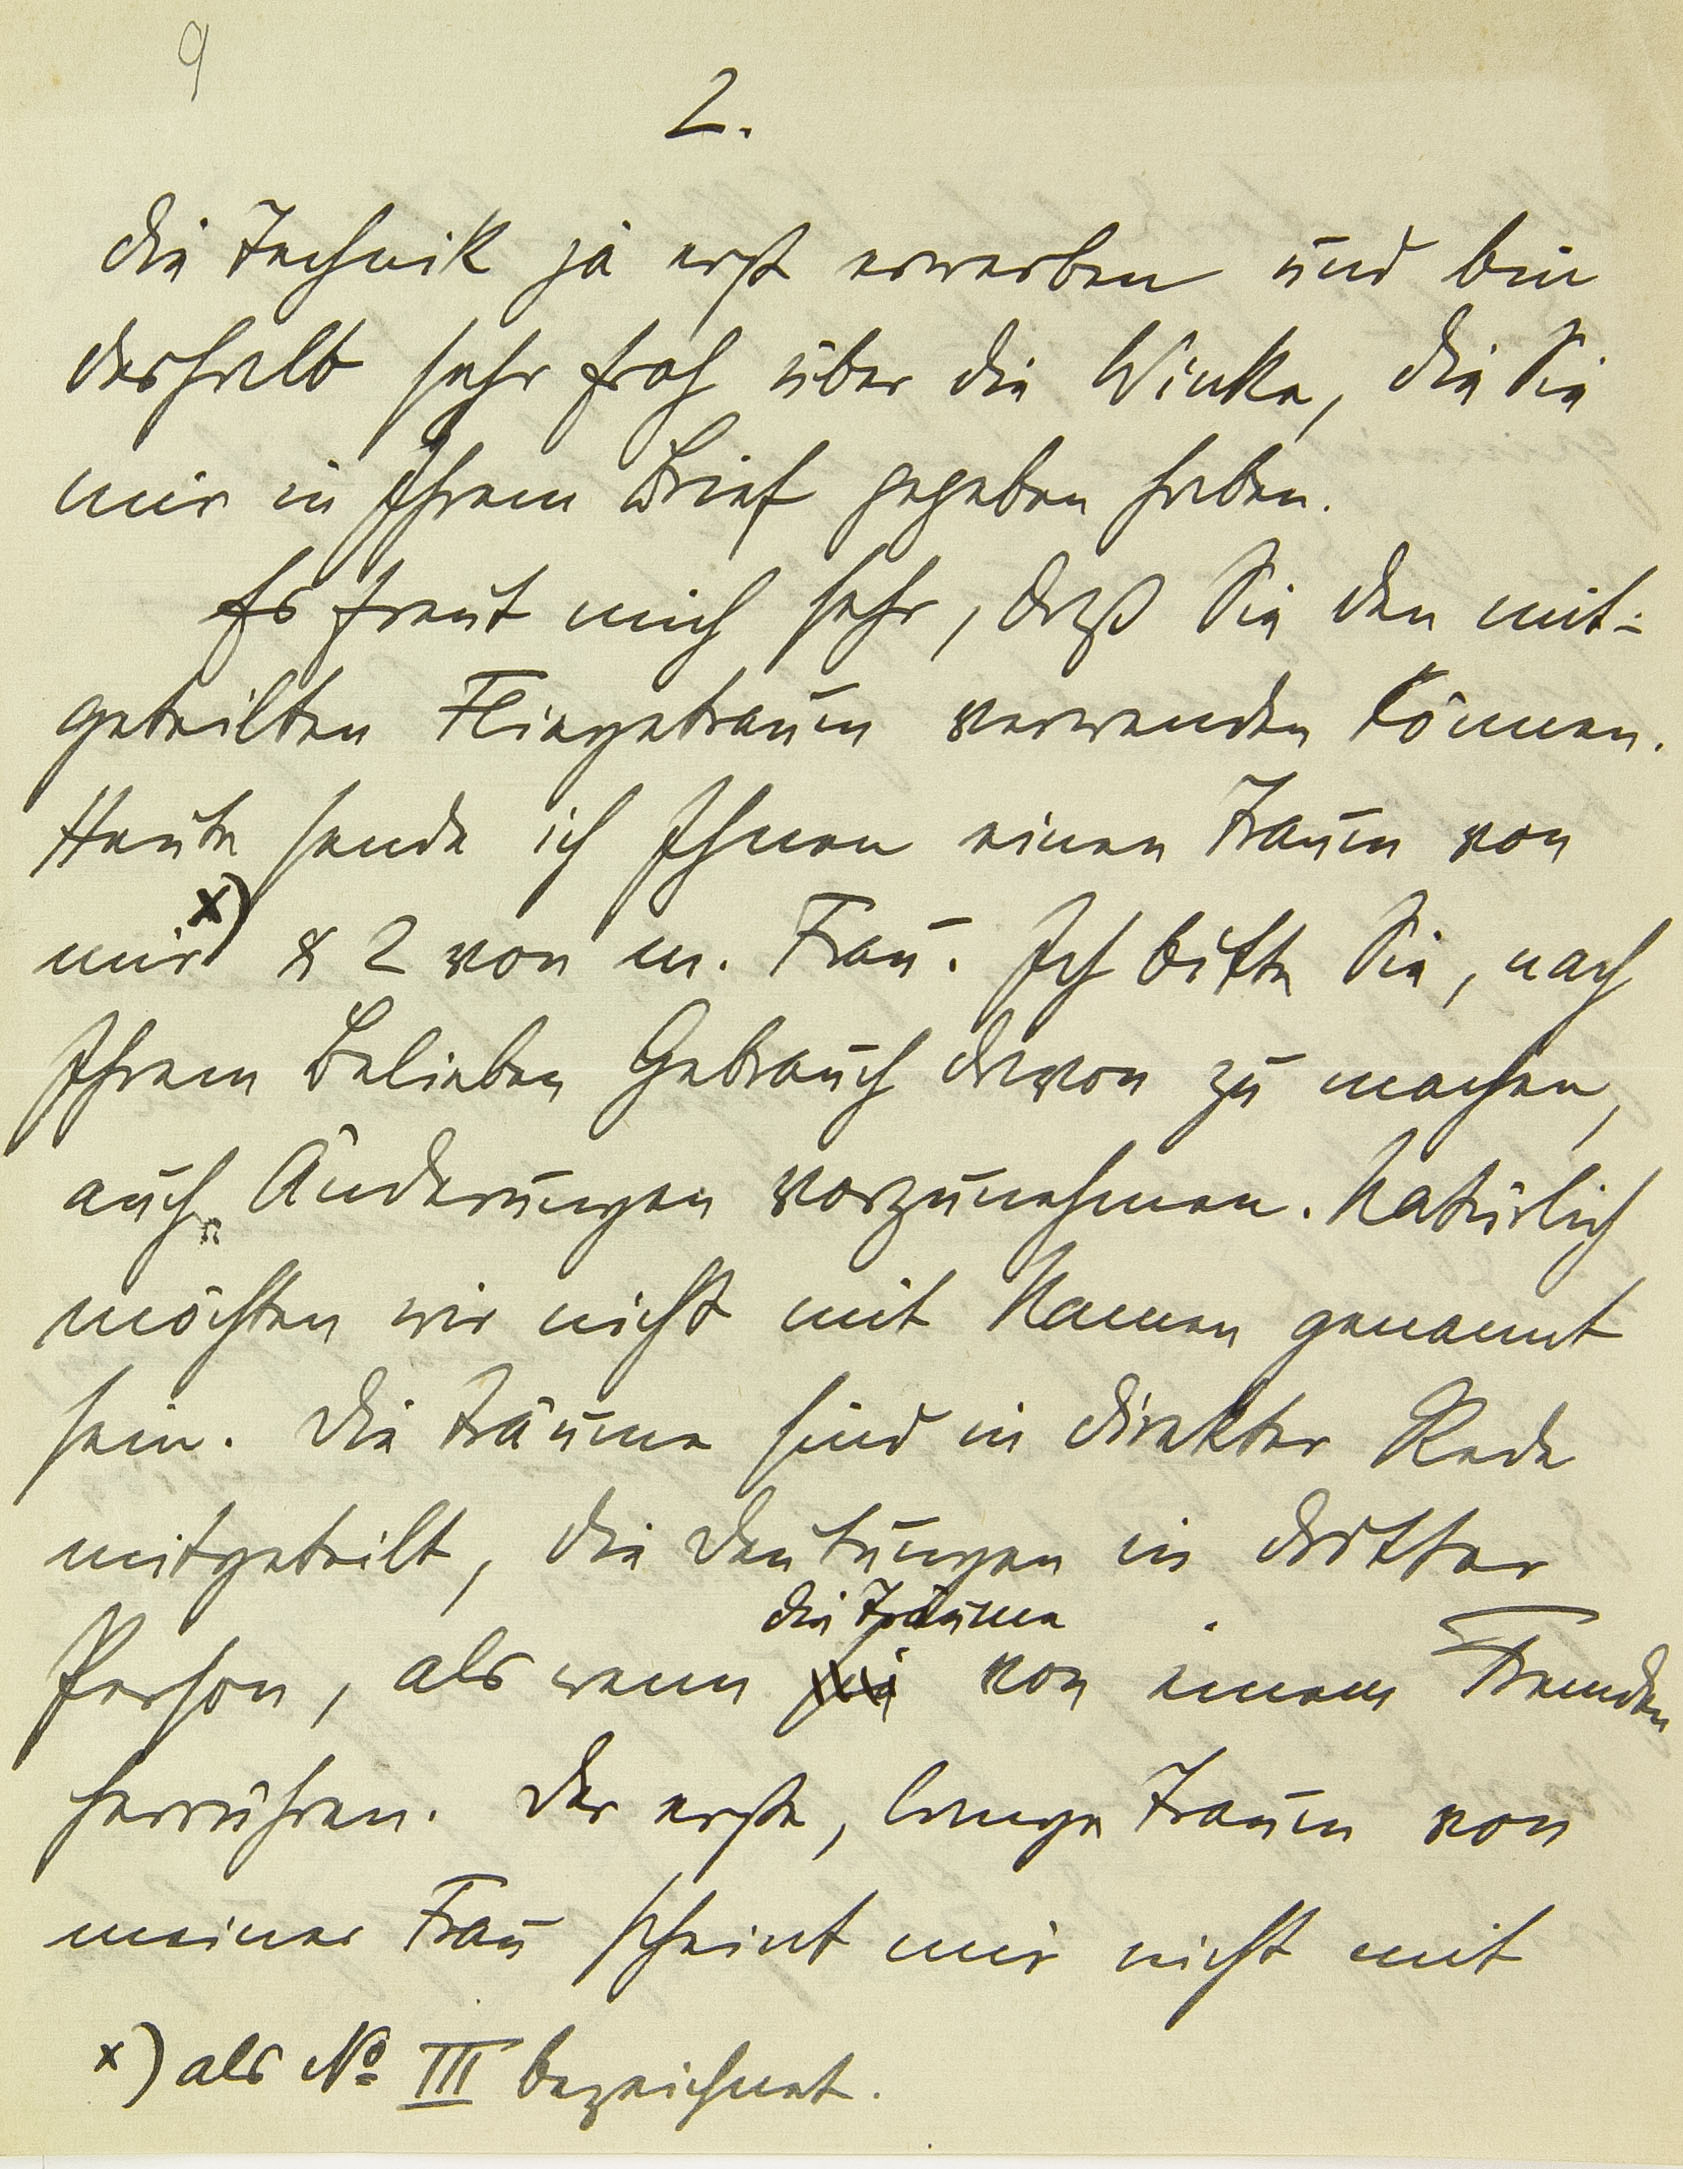 9
2.
die Technik ja erst erwerben und bin
deshalb sehr froh über die Winke, die Sie
mir in Ihrem Brief gegeben haben.
Es freut mich sehr, daß Sie den mit-
geteilten Fliegetraum verwenden können.
Heute sende ich Ihnen einen Traum von
mir x) & 2 von m. Frau. Ich bitte Sie, nach
Ihrem Belieben Gebrauch davon zu machen,
auch Änderungen vorzunehmen. Natürlich
möchten wir nicht mit Namen genannt
sein. Die Träume sind in direkter Rede
mitgeteilt, die Deutungen in dritter
die Träume
Person, als wenn sie von einem Fremden
herrühren. Der erste, lange Traum von
meiner Frau scheint mir nicht mit
x) als No III bezeichnet.